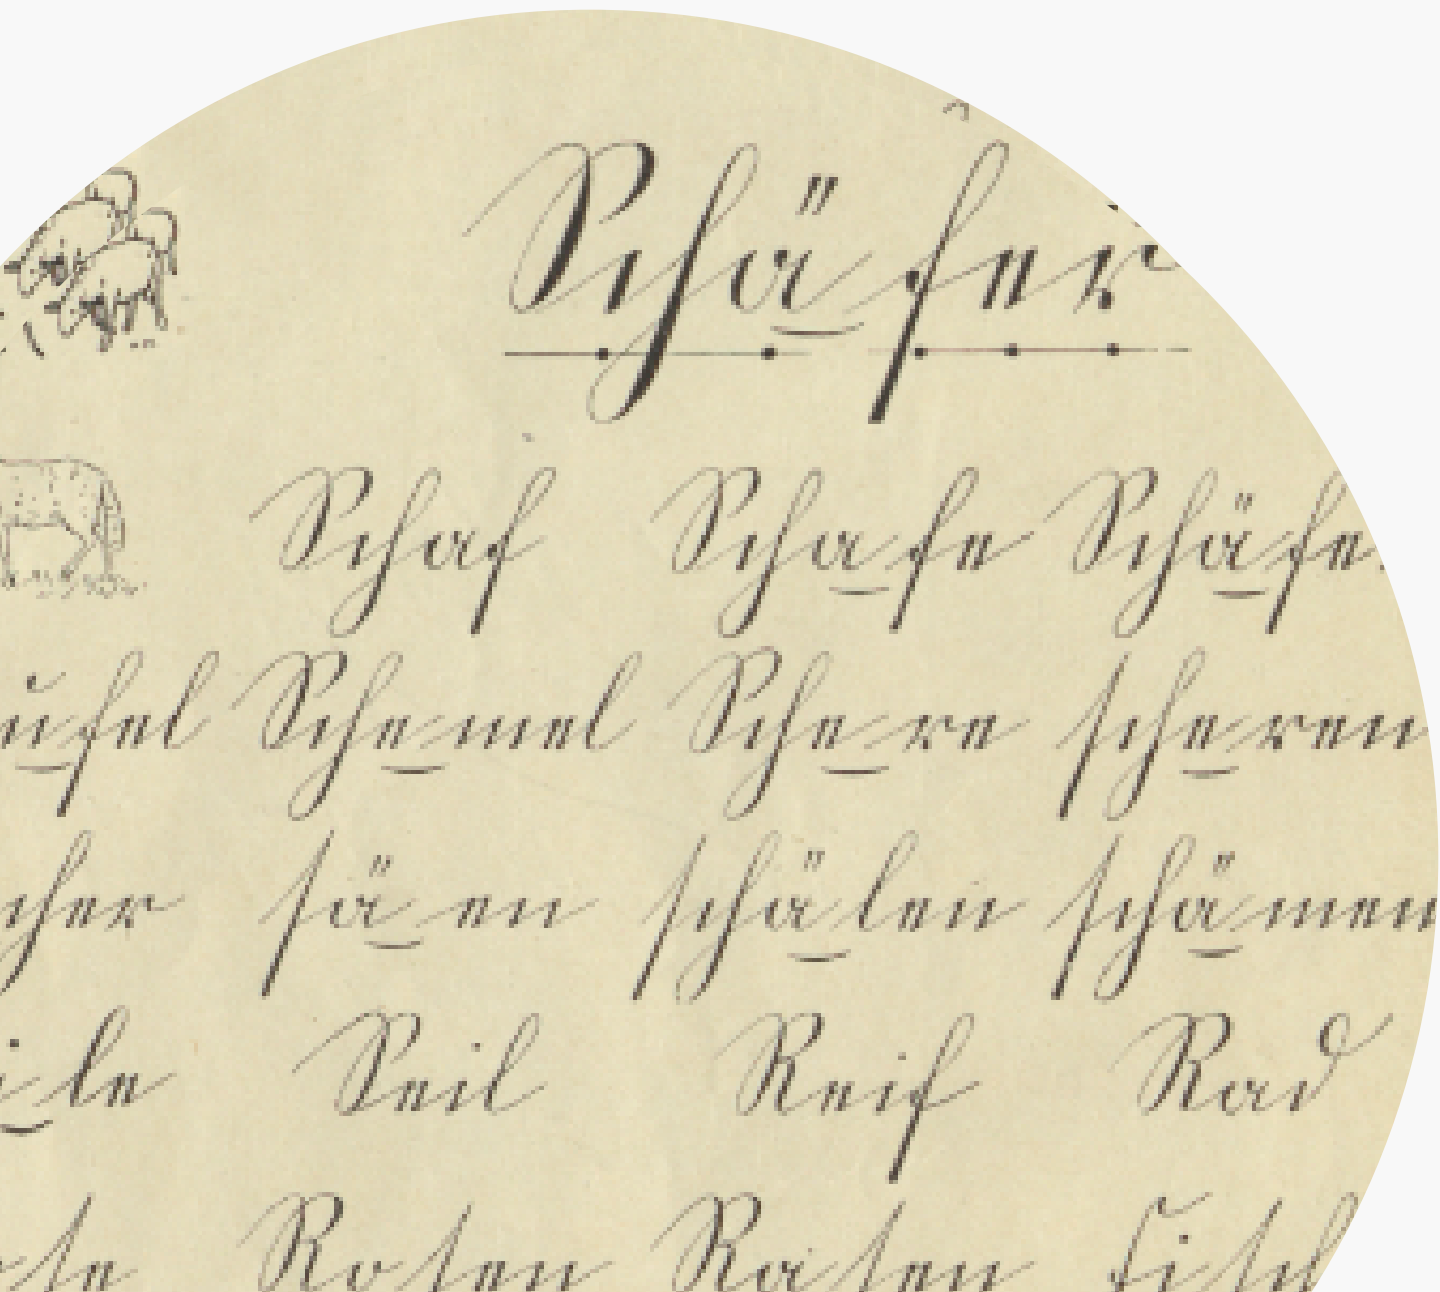 Schäfer
Schaf Schafe Schäfe
ufel Schemel Schere scheren
cher säen schälen schämen
ile Seil Reif Rad
Rosen Rasen Fisch